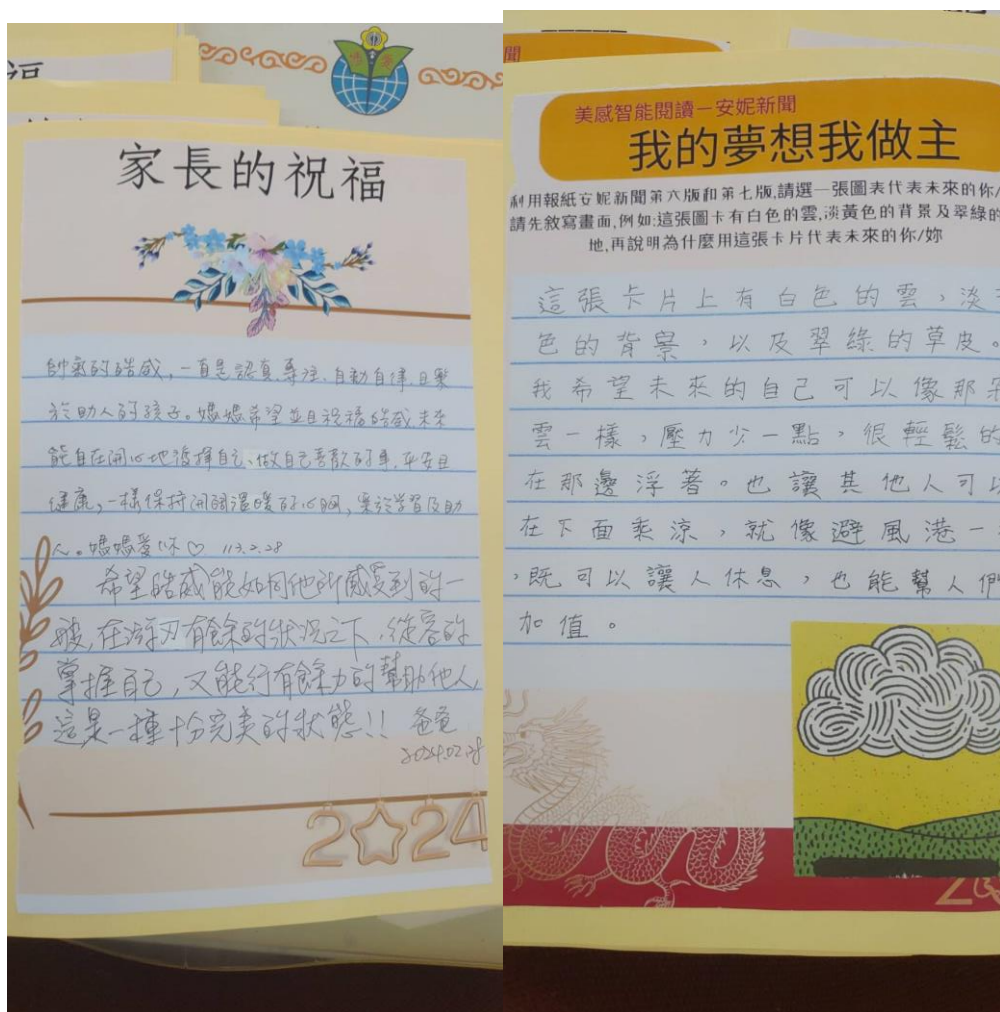 福
家長的祝福
帥氣的皓威,一直是認真、專注、自動自律、且樂
於助人的孩子。媽媽希望並且祝福皓威未來
能自在開心地發揮自己、做自己喜歡的事,平安且
健康,一樣保持開闊溫暖的心胸,樂於學習及助
人。媽媽愛你♡ 113.2.28
希望皓威能如同他所感受到的一
般,在游刃有餘的狀況之下,從容的
掌握自己,又能行有餘力的幫助他人,
這是一種十分完美的狀態!! 爸爸
2024.02.28
2024
聞
美感智能閱讀－安妮新聞
我的夢想我做主
利用報紙安妮新聞第六版和第七版,請選一張圖表代表未來的你/
請先敘寫畫面,例如:這張圖卡有白色的雲,淡黃色的背景及翠綠的
地,再說明為什麼用這張卡片代表未來的你/妳
這張卡片上有白色的雲,淡
色的背景,以及翠綠的草皮。
我希望未來的自己可以像那朵
雲一樣,壓力少一點,很輕鬆的
在那邊浮著。也讓其他人可以
在下面乘涼,就像避風港一
,既可以讓人休息,也能幫人們
加值。